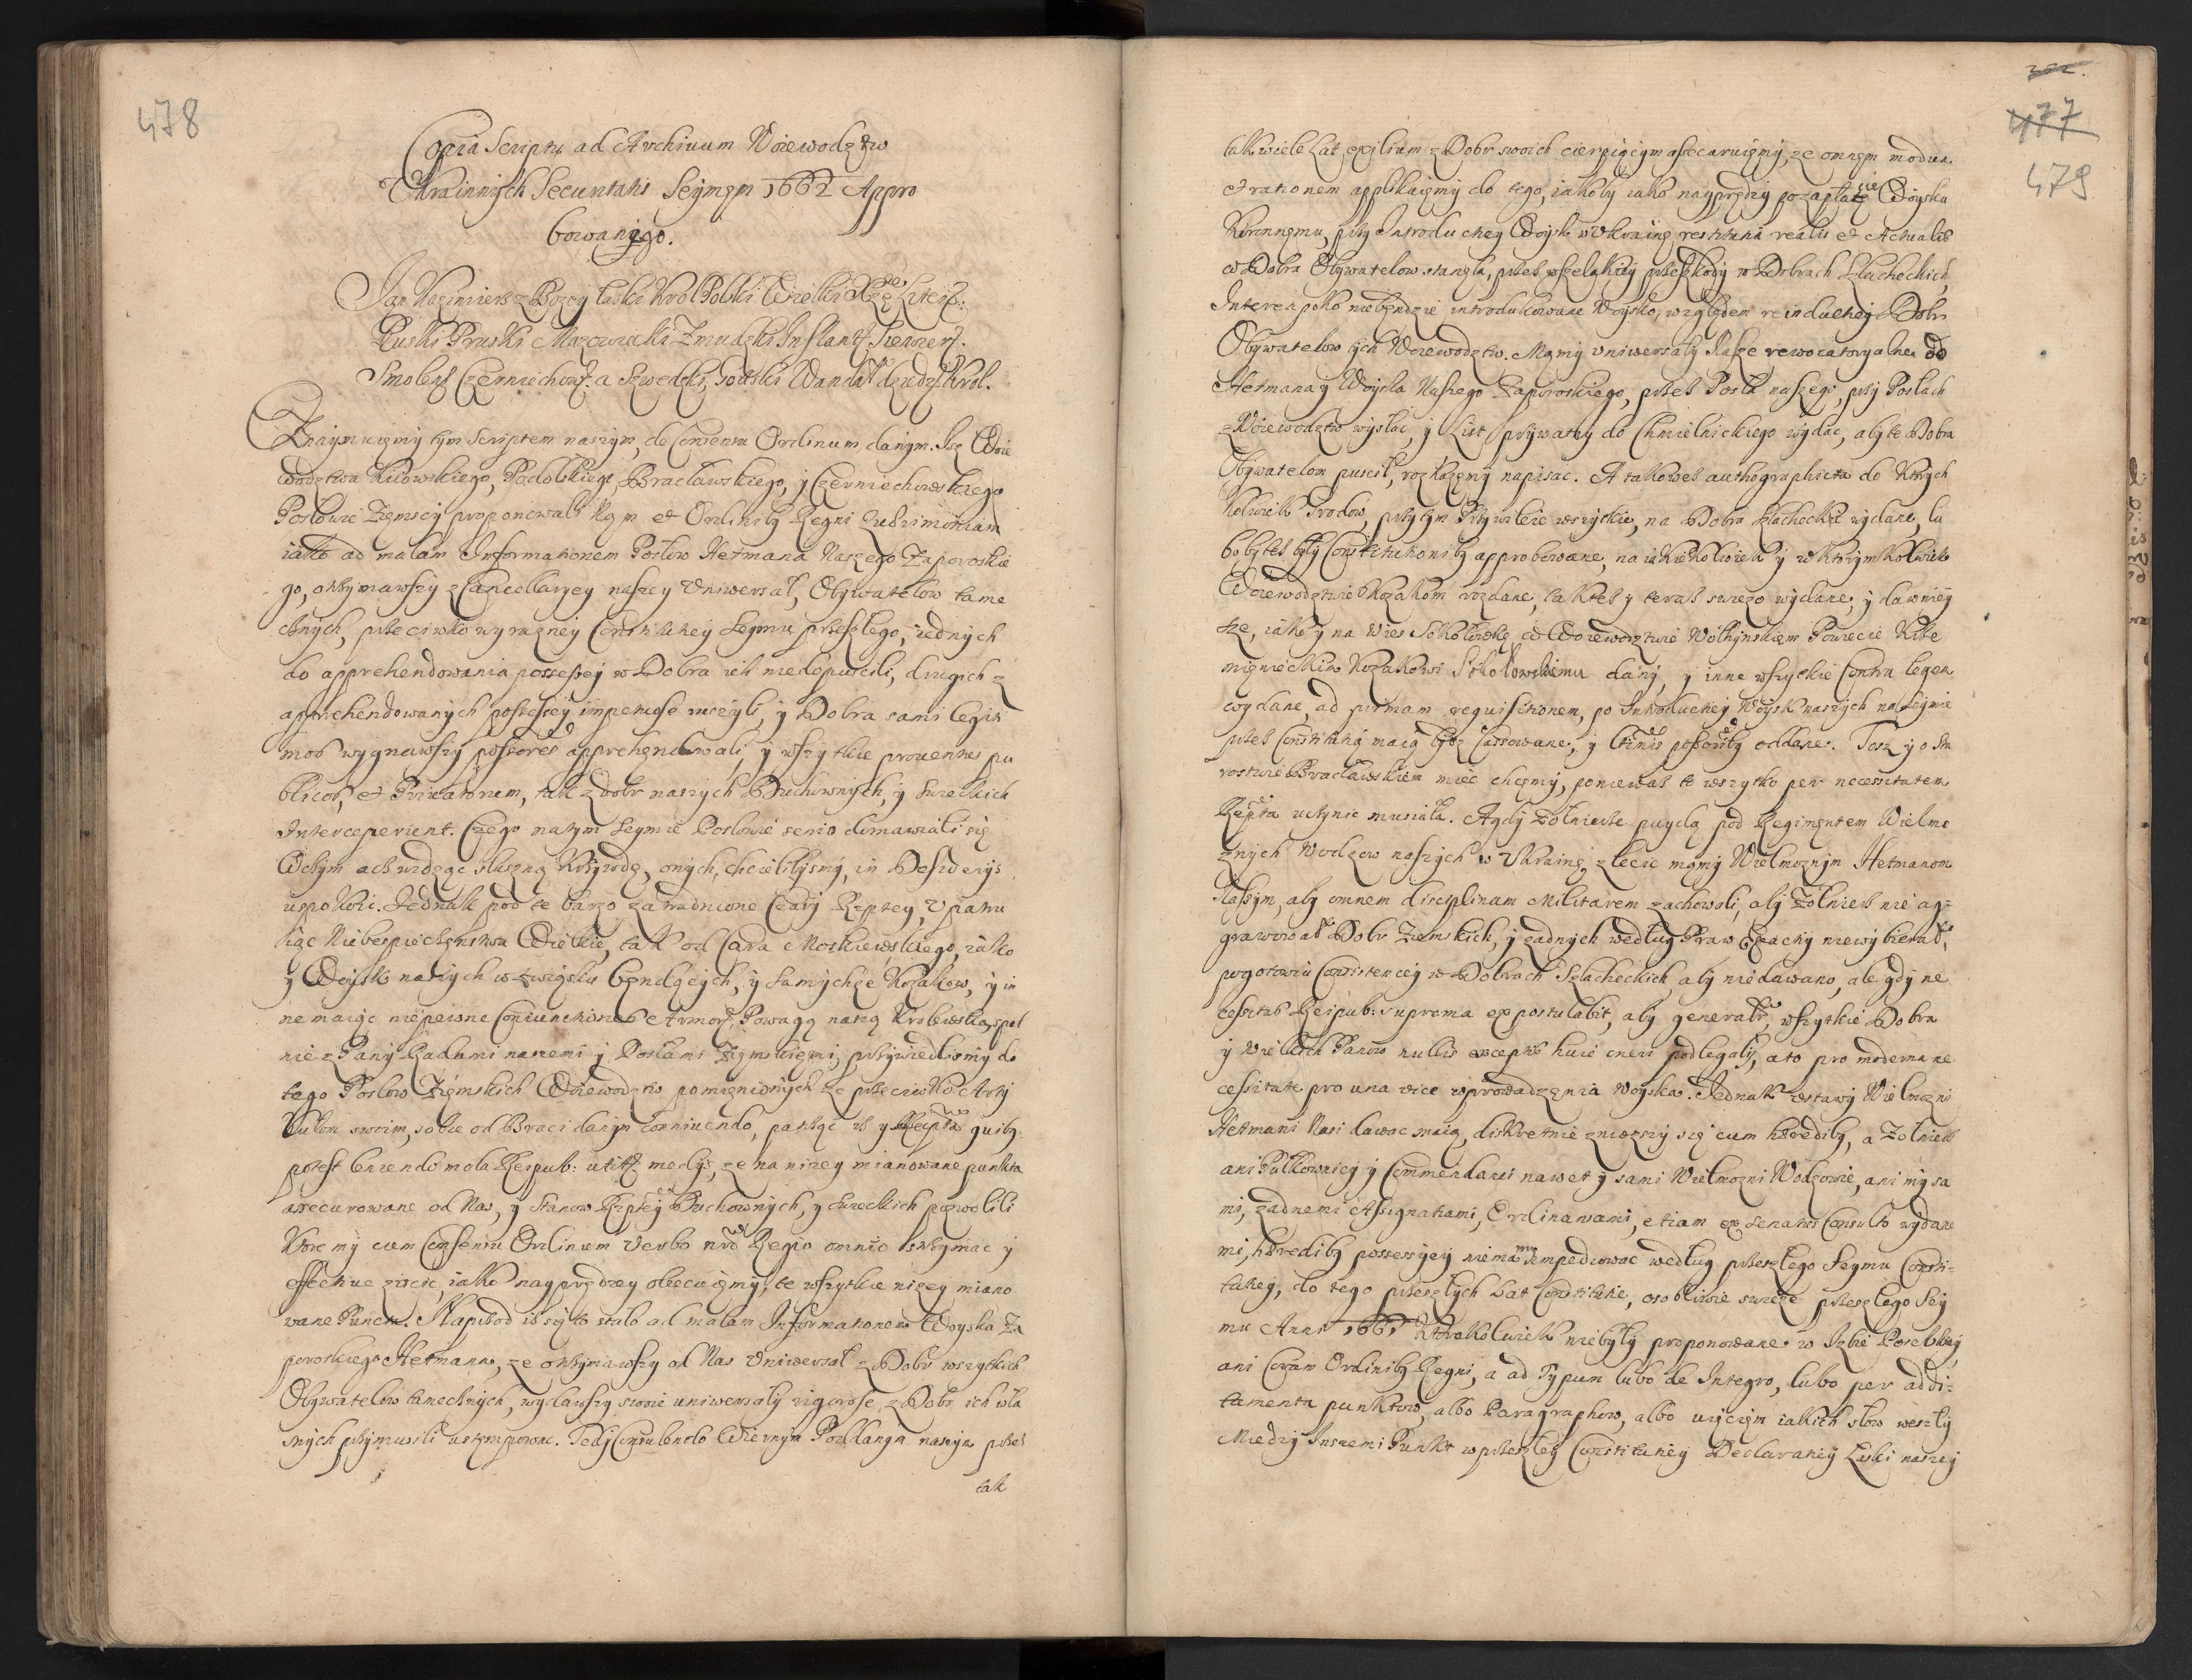 478
Copia Scriptu ad Archiuum Woiewodztw
Ukrainnych Securitatis Seymem 1662 Appro
bowanego.
Jan Kazimierz z Bozey Łaski Krol Polski Wielki Xże Liteif:
Ruski Pruski Mazowiecki Zmudzki Inflant: Siewier:
Smolens: Czerniechow: a Szwedzki, Gottski Wandal: dziedz: Krol.
Znaymuiemy tym Scriptem naszym, de Consensu Ordinum danym. Isz Woie
wodztwa Kiiowskiego, Podolskiego, Bracławskiego, y Czerniechowskiego
Posłowie Ziemscy proponowali Nam et Ordinibg Regni
iako ad malam Informationem Posłow Hetmana Naszego Zaporoskie
go, otrzymawszy z Cancellaryey naszey Uniwersał, Obywatelow tame
cznych, przeciwko wyrazney Constitutiey Seymu przeszłego, iednych
do apprehendowania possessiey w Dobra ich niedopuscili, drugich z
apprehendowanych possessiey impetuose ruszyli, y Dobra sami legiti
mos wygnawszy possores apprehendowali, y wszytkie prouentus pu
blicos, et Priuatorum, tak z dobr naszych Duchownych, y Swieckich
Interceperient. Czego natym Seymie Posłowie serio domawiali się
Wczym acz widząc słuszną Krzywdę, onych, chcielibysmy, in Desiderys
uspokoic. Jednak pod te barzo zatrudnione Czasy Rzptey, Upatru
iąc Niebespieczenstwa Wielkie, tak od Cara Moskiewskiego, iako
y Woysk naszych w związku będących, y Samychze Kozakow, y in
ne maiąc niepewne Coniunctiones Armor: Powagą naszą Krolewską, spol
nie z Pany Radami naszemi y Posłami Ziemskiemi, przywiedlismy do
tego Posłow Ziemskich Woiewodztw pomienionych ze przeciwko Arty
kułom swoim, sobie od Braci danym conniuendo, patrząc
potest leniendo mala Reipub: medys, ze na nizey mianowane punkta
assecurowane od Nas, y Stanow Rzptey Duchownych, y Swieckich pozwolili
Ktore my cum Consensu Ordinum Verbo nro Regio omnio strzymac y
effectiue ziscic, iako nayprędzey obiecuiemy, te wszytkie nizey miano
wane Puncta. Naprzod iz się to stało ad malam Informationem Woyska Za
poroskiego Hetmana, ze otrzymawszy od Nas Uniwersał z Dobr wszytkich
Obywatelow tamecznych, wydawszy swoie uniwersały rigorose, z Dobr ich wła
snych przymusili ustempowac. Tedy Consulendo Wiernym Poddanym naszym przez
tak
477
479
tak wiele Lat exilium z Dobr swoich cierpiącym assecaruiemy, ze omnem modum
et rationem applikuiemy do tego, iakoby iako nayprędzy po zapłacie Woysku
Koronnemu, przy Introductiey Woysk w Ukrainę restitutia realis et Actualis
w Dobra Obywatelow stanęła, przez wszelakiey przeszkody w Dobrach Szlacheckich,
Interea poko niebendzie introdukowane Woysko, względem reinductiey Dobr
Obywatelow tych Woiewodztw. Mamy uniwersały Nasze rewocatoryalne do
Hetmana y Woyska Naszego Zaporoskiego, przez Posła naszego, przy Posłach
z Woiewodztw wysłac, y List prywatny do Chmielnickiego wydac, aby te Dobra
Obywatelom puscił, rozkazemy napisac. A takowez authographicta do Ktorych
Kolwiek Grodow, przytym Przywileie wszytkie, na Dobra Szlacheckie wydane, lu
bo byteż były Constitutionibg approbowane, na iakieżkolwiek y w ktorymkolwiek
Woiewodztwie Kozakom rozdane, takież y teraz swiezo wydane, y dawniey
sze, iako y na Wies Sokołowskę w Woiewodztwie Wołhynskiem Powiecie Krze
mienieckim Kozakowi Sokołowskiemu dany, y inne wszytkie Contra legem
wydane, ad primam requisitionem, po Introductiey Woysk naszych na Seymie
przez Constitutią maią bydz Cassowane, y ltimis possoribg oddane. Tosz y o Sta
rostwie Bracławskiem miec chcemy, poniewasz te wszytko per necessitatem
Rzpta uczynic musiała. A gdy Zołnierze puydą pod Regimentem Wielmo
znych Wodzow naszych w Ukrainę, zlecic mamy Wielmoznym Hetmanom
Naszym, aby omnem disciplinam Militarem zachowali, aby Zołnierz nie ag-
grawował Dobr Ziemskich, y zadnych według Praw Exactiy niewybierał,
pogotowiu Consistenciey w Dobrach Szlacheckich, aby niedawano, ale gdy ne
cessitas Reipub: suprema expostulabit, aby generalr, wszytkie Dobra
y Wielkich Panow nullis exceptis huic oneri podlegały, a to pro moderna ne
cessitate pro una vice wprowadzenia woyska. Jednak ustawy Wielmozni
Hetmani Nasi dawac maią, diskretnie zniozszy się cum hæredibg, a Zołnierz
ani Pułkownicy y Commendanci nawet y sami Wielmozni Wodzowie, ani my sa
mi, zadnemi Assignatiami, Ordinansami, etiam ex Senatus Consulto wydane
mi, hæredibg possessyey niemamy impediowac według przeszłego Seymu Consti-
tutiey, do tego przeszłych Lat Constitutie, osobliwie swieze przeszłego Sey
mu Anni 1661 Ktorekolwiek niebyły proponowane w Izbie Poselskiey
ani Coram Ordinibg Regni, a ad Typum lubo de Integro, lubo per addi-
tamenta punktow, albo Paragraphow, albo uięciem iakich słow weszły
Miedzy Inszemi Punkt w przeszłey Constitutiey Declaratiey Łaski naszey